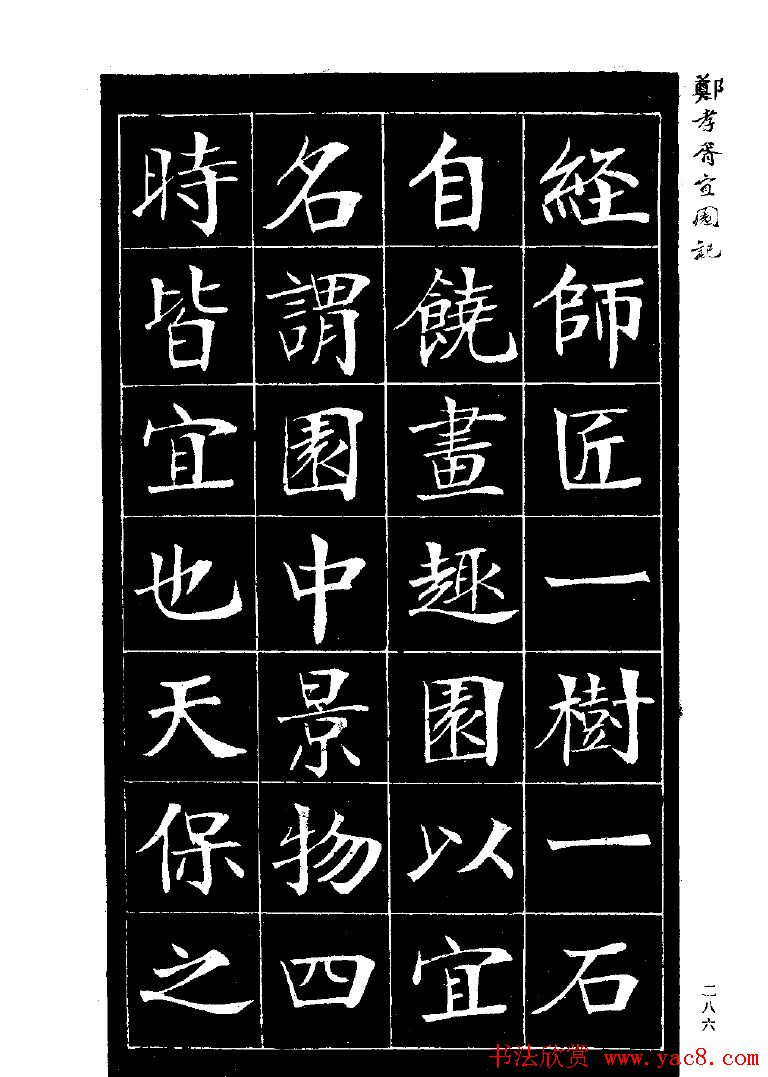 鄭孝胥宜園記
經師匠一樹一石
自饒畫趣園以宜
名謂園中景物四
時皆宜也天保之
二八六
书法欣赏 www.yac8.com